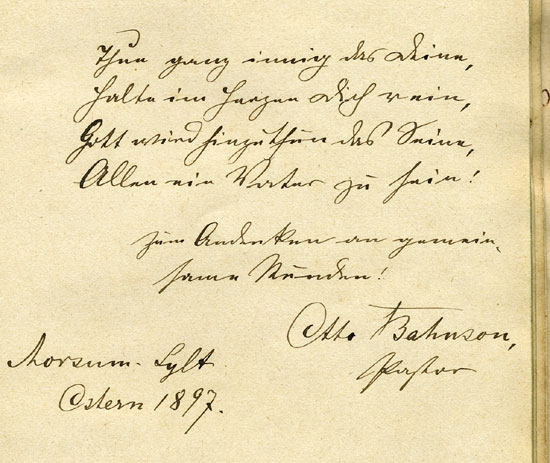 Thue ganz innig das Deine,
Halte im Herzen Dich rein,
Gott wird hinzuthun das Seine,
Allen ein Vater zu sein!
Zum Andenken an gemein-
same Stunden!
Otto Bahnson,
Pastor
Morsum-Sylt
Ostern 1897.